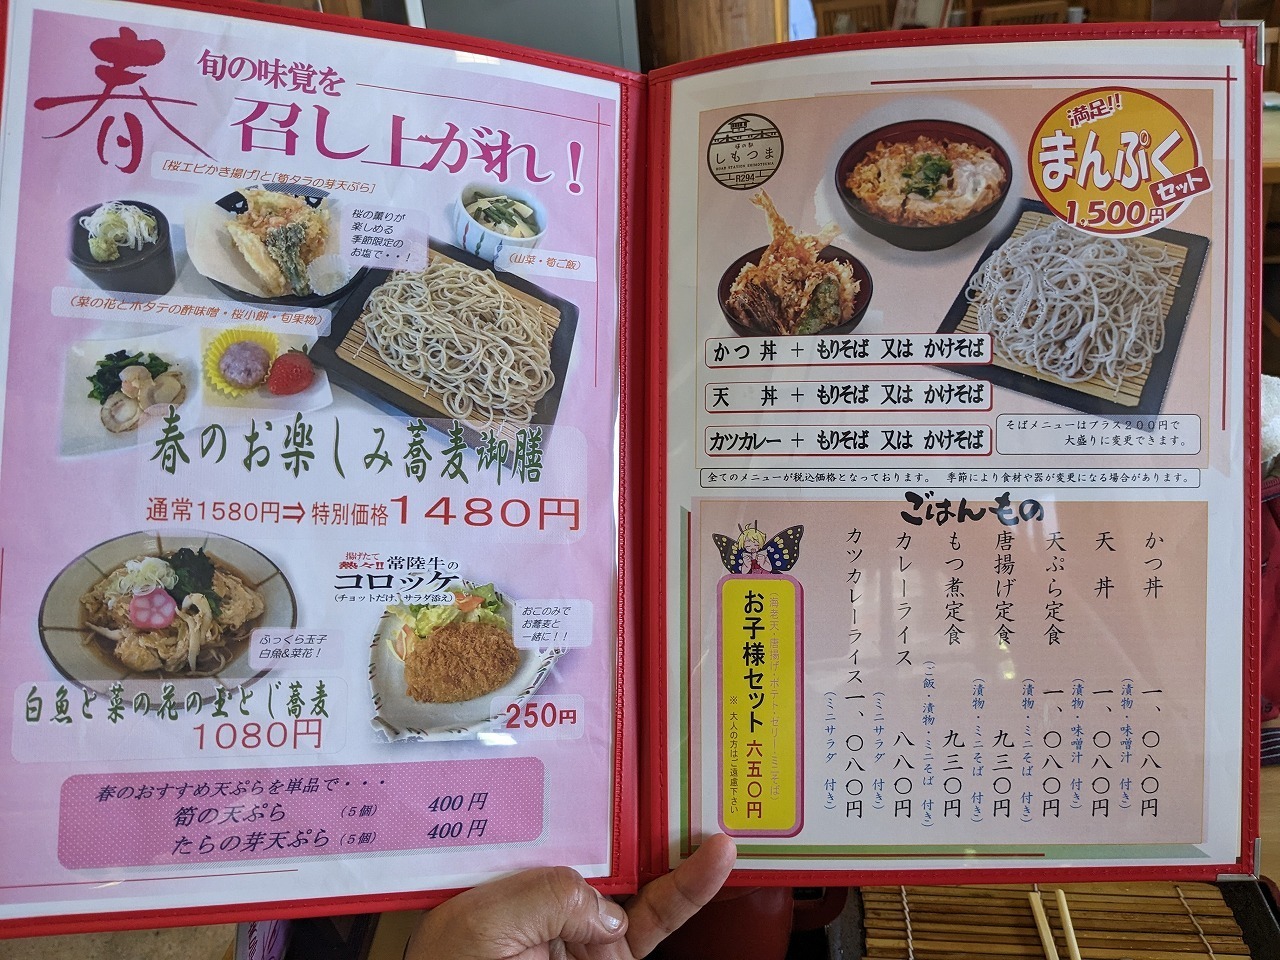 春
旬の味覚を
召し上がれ！
[桜エビかき揚げ]と[筍タラの芽天ぷら]
桜の薫りが
楽しめる
季節限定の
お塩で・・！
(山菜・筍ご飯)
(菜の花とホタテの酢味噌・桜小餅・旬果物)
春のお楽しみ蕎麦御膳
通常1580円⇒特別価格1480円
揚げたて
熱々!!常陸牛の
コロッケ
(チョットだけ、サラダ添え)
おこのみで
お蕎麦と
一緒に！！
250円
ふっくら玉子
白魚&菜花！
白魚と菜の花の玉とじ蕎麦
1080円
春のおすすめ天ぷらを単品で・・・
筍の天ぷら (５個) 400円
たらの芽天ぷら (５個) 400円
道の駅
しもつま
ROAD STATION SHIMOTSUMA
R294
満足!!
まんぷく
セット
1,500円
かつ丼 + もりそば 又は かけそば
天丼 + もりそば 又は かけそば
カツカレー + もりそば 又は かけそば
そばメニューはプラス２００円で
大盛りに変更できます。
全てのメニューが税込価格となっております。 季節により食材や器が変更になる場合があります。
ごはんもの
かつ丼 一、〇八〇円
(漬物・味噌汁 付き)
天丼 一、〇八〇円
(漬物・味噌汁 付き)
天ぷら定食 一、〇八〇円
(漬物・ミニそば 付き)
唐揚げ定食 九三〇円
(漬物・ミニそば 付き)
もつ煮定食 九三〇円
(ご飯・漬物・ミニそば 付き)
カレーライス 八八〇円
(ミニサラダ 付き)
カツカレーライス 一、〇八〇円
(ミニサラダ 付き)
(海老天・唐揚げ・ポテト・ゼリー・ミニそば)
お子様セット 六五〇円
※ 大人の方はご遠慮下さい